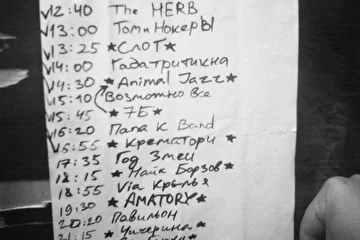 12:40 The HERB
13:00 Томи Нокеры
13:25 *СЛОТ*
14:00 Гадатритикна
14:30 *Animal Jazz*
15:10 Возможно Все
15:45 *7Б*
16:20 Папа К Band
16:55 *Крематори*
17:35 Год Змеи
18:15 *Найк Борзов*
18:55 Via Крылья
19:30 *AMATORY*
20:20 Павильон
21:15 *Чичерина*